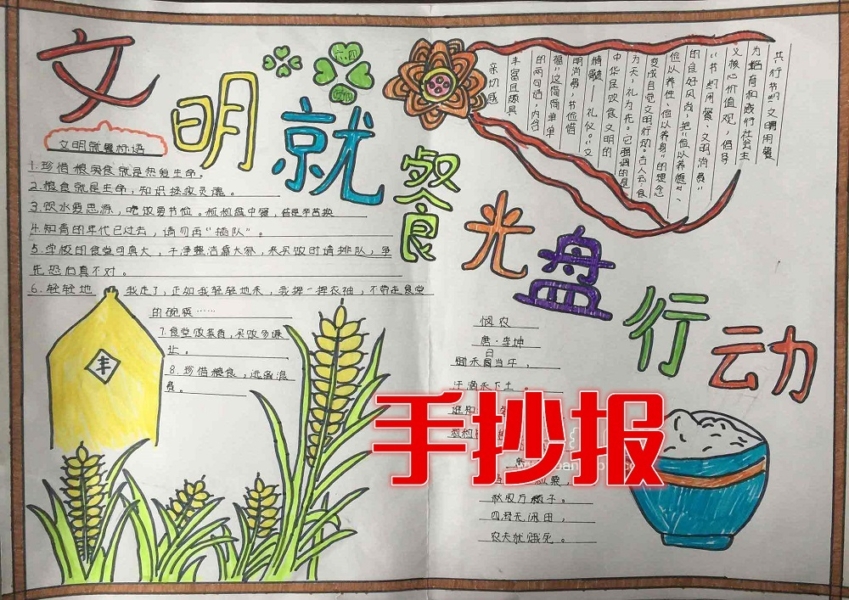 文明就餐光盘行动
文明就餐标语
1.珍惜粮食就是热爱生命。
2.粮食就是生命,知识拯救灵魂。
3.饮水要思源,吃饭要节俭。
4.知青的年代已过去,请勿再“插队”。
5.学校的食堂可真大,干净整洁靠大家,来买饭时请排队,争
先恐后真不对。
6.轻轻地 我走了,正如我轻轻地来,我挥一挥衣袖,不带走食堂
的碗筷……
8.珍惜粮食,远离浪
费。
丰
共行节约文明用餐
为培育和践行社会主
义核心价值观,倡导
“节约用餐、文明消费”
的良好风尚,把“俭以养德”、
变成自觉文明行动。古人云食
为天,礼为先。它强调的是
中华民饮食文明的
精髓 礼仪。“文
明消费,节俭惜
福”这简简单单
的两句话,内容
丰富且颇具
亲切感
悯农
唐·李绅
锄禾日当午,
汗滴禾下土。
手抄报
秋收万颗子。
四海无闲田,
农夫犹饿死。